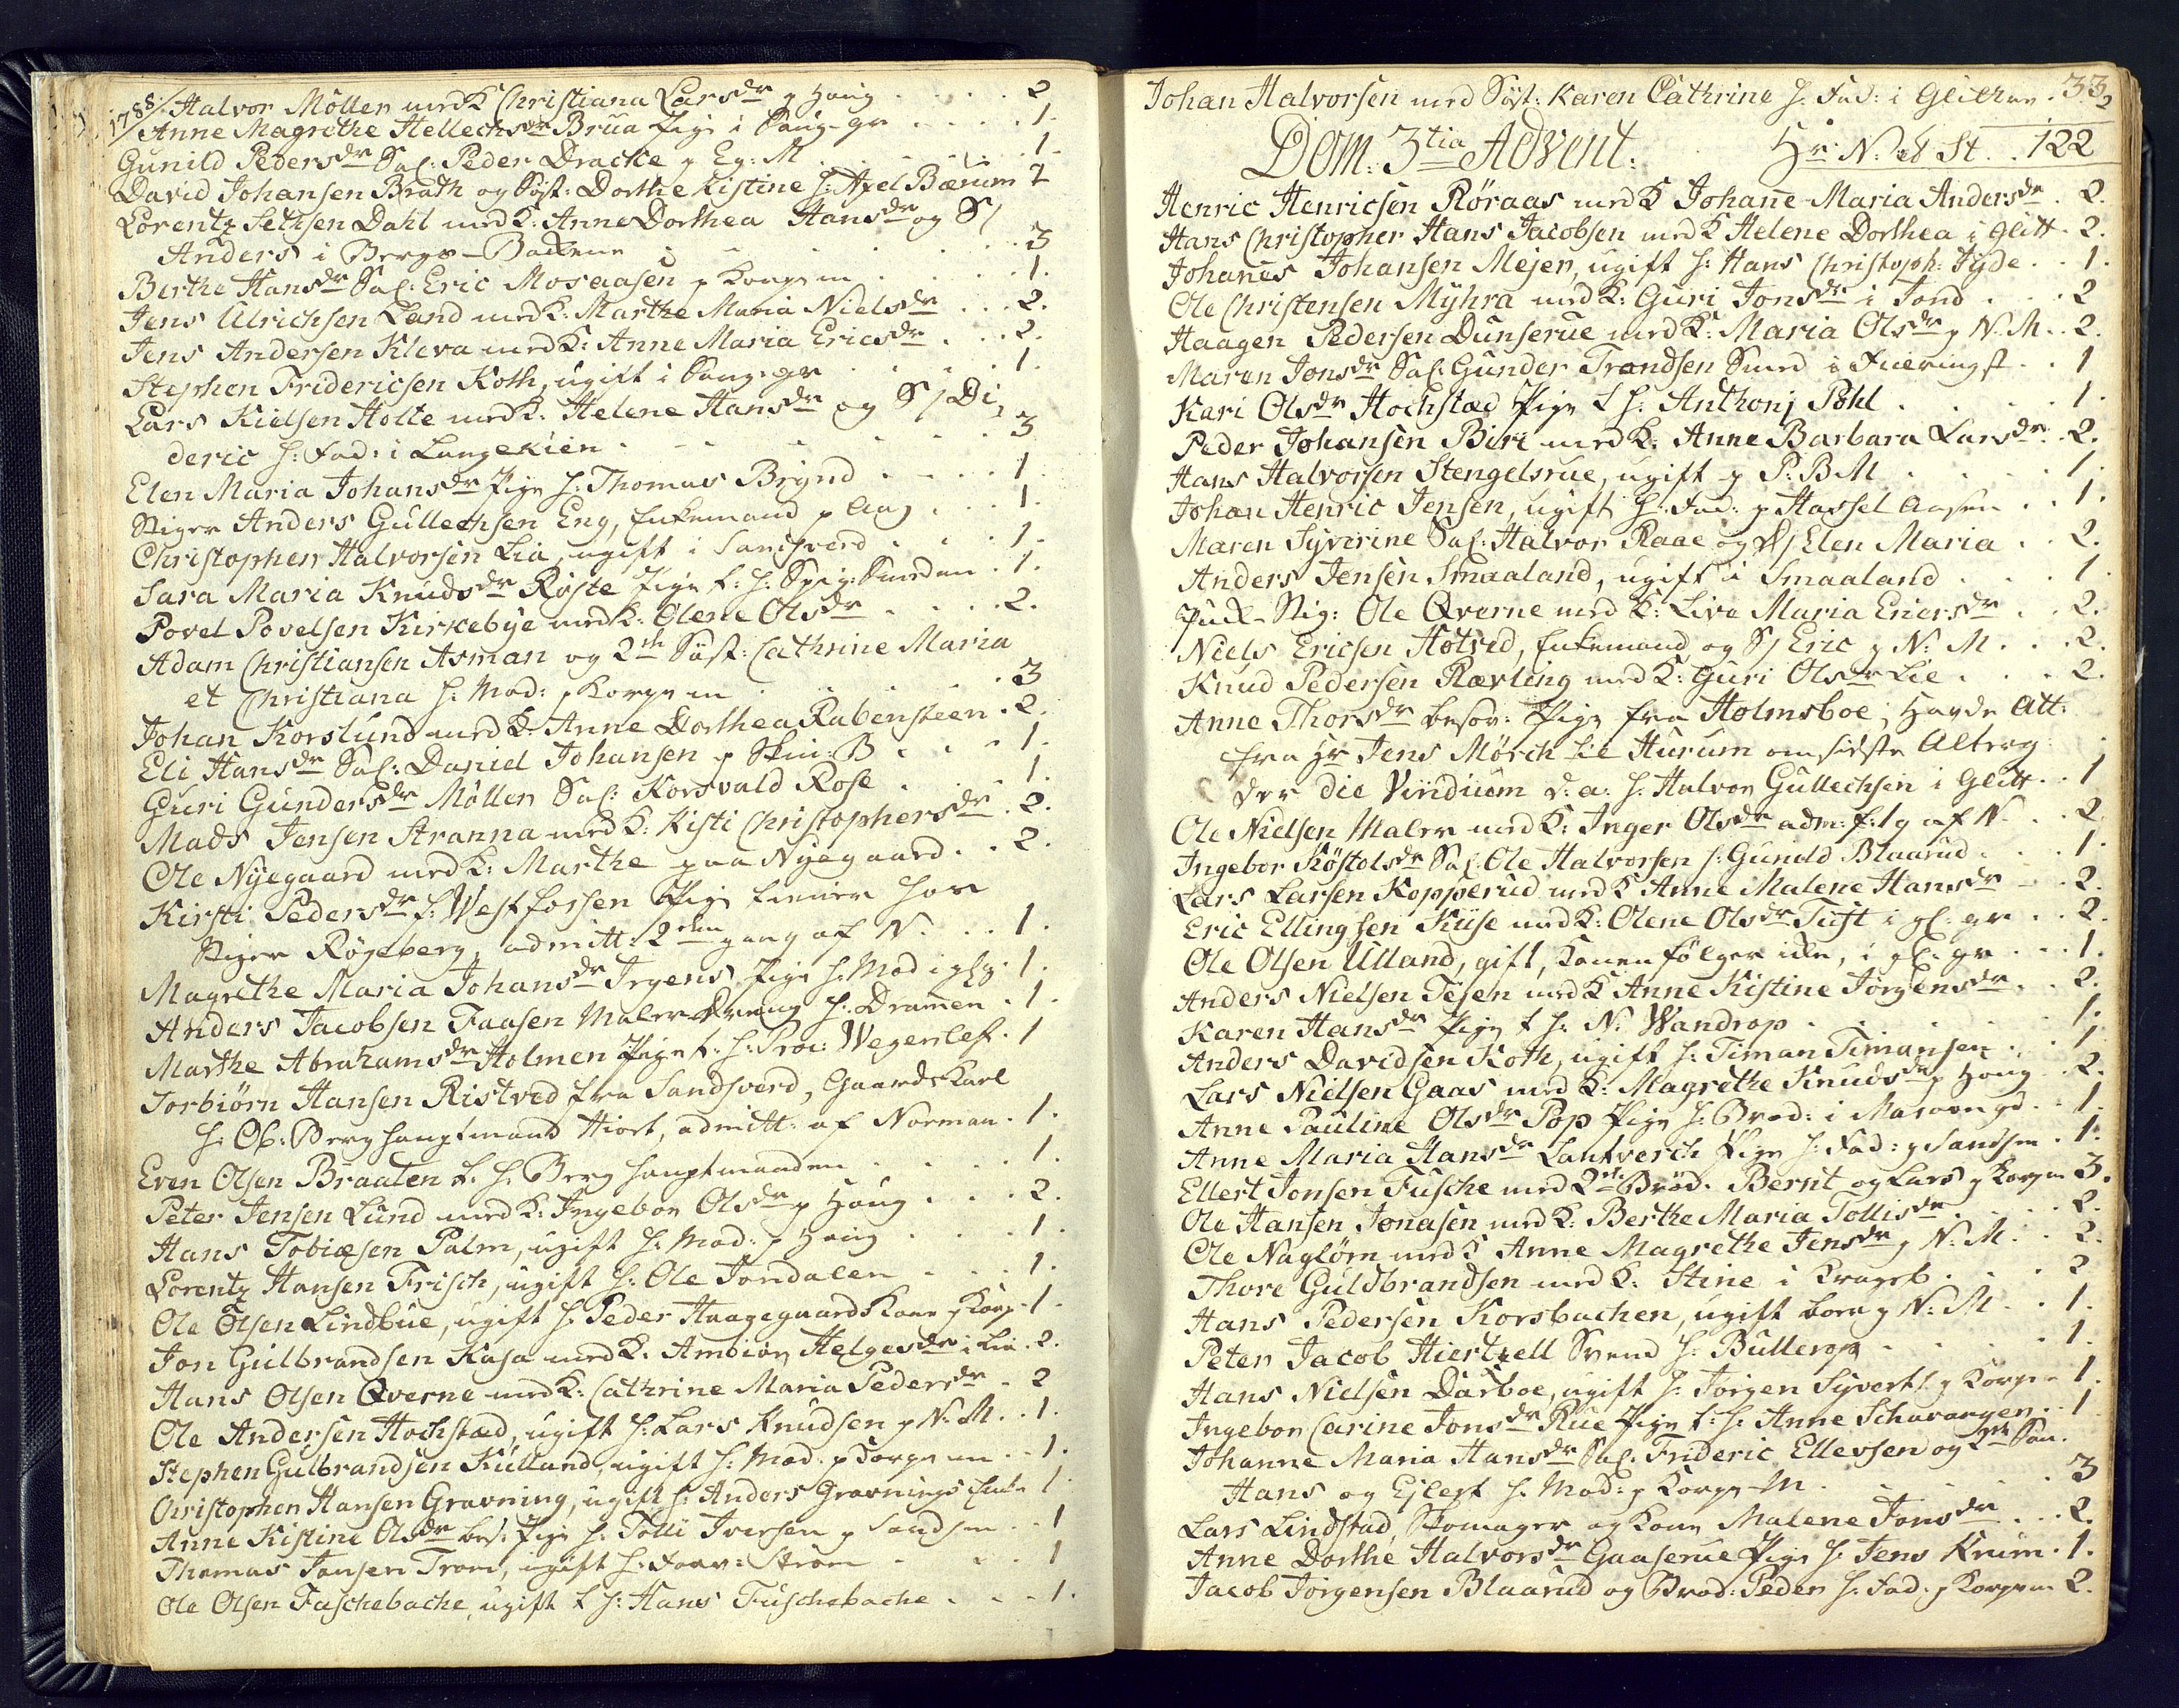 1788. Halvor Möller med K Christiana Larsdr p Houg . . . . 2
Anne Magrethe Hellechsdr Brua Pige i Saug-gr . . . . 1.
Gunild Pedersdr Sal: Peder Dracke p Eg: M . . . . 1
David Johansen Brath og Syst: Dorthe Kistine H: Axel Bærum 2
Lorentz Sethsen Dahl med K: Anne Dorthea Hansdr og S/
Anders i Bergs-Bakkene . . . . 3
Berthe Hansdr Sal: Eric Mosaasen p Korge m . . . . 1.
Jens Ulrichsen Land med K: Marthe Maria Nielsdr . . . 2.
Jens Andersen Kleva med K: Anne Maria Ericsdr . . . 2.
Stephen Fridericsen Koth, ugift i Saug-gr . . . . 1.
Lars Kielsen Holte med K: Helene Hansdr og S/ Di,
deric H: Fad: i Langekien . . . . 3
Elen Maria Johansdr Pige H: Thomas Brynd . . . . 1
Stiger Anders Gullechsen Eng, Enkemand p Aas . . . 1.
Christopher Halvorsen Lia, ugift i Sandsverd . . . 1.
Sara Maria Knudsdr Röste Pige t: H: Spig: Smeden . 1.
Povel Povelsen Kirkebye med K: Olene Olsdr . . . . 2.
Adam Christiansen Asman og 2de Syst: Cathrine Maria
et Christiana H: Mod: p Korge m . . . . 3
Johan Korslund med K: Anne Dorthea Rabensteen . 2.
Eli Hansdr Sal: Daniel Johansen p Skin: B . . . 1.
Guri Gundersdr Möller Sal: Korsvald Rose . . . 1.
Mads Jensen Stranna med K: Kisti Christophersdr . 2.
Ole Nyegaard med K: Marthe paa Nyegaard . . 2.
Kirsti Pedersdr f: Westfossen Pige tiener hos
Stiger Rögeberg, admitt: 2den gang af N. . . 1.
Magrethe Maria Johansdr Irgens Pige H: Mod i gl: g: 1.
Anders Jacobsen Faasen Maler Dreng H: Dramen . 1.
Marthe Abrahamsdr Holmen Pige t: H: Proc: Wegersløf . 1
Torbiörn Hansen Ristved fra Sandsverd, Gaardskarl
H: Ob: Berghauptmand Hiort, admitt: af Norman . 1.
Even Olsen Braaten t: H: Berghauptmanden . . . . 1.
Peter Jensen Lund med K: Ingebor Olsdr p Houg . . . 2.
Hans Tobiæsen Palm, ugift H: Mod: p Houg . . . . 1.
Lorentz Hansen Frisch, ugift H: Ole Jondalen . . . 1.
Ole Olsen Lindbue, ugift H: Peder Haagegaards Kone p Korg- 1.
Jon Gulbrandsen Kasa med K: Ambior Helgesdr i Lia . 2.
Hans Olsen Qverne med K: Cathrine Maria Pedersdr . 2
Ole Andersen Hochstæd, ugift H: Lars Knudsen p N: M. . 1.
Stephen Gulbrandsen Kulland, ugift H: Mod: p Korge m . . 1.
Christopher Hansen Gravning, ugift H: Anders Gravnings Enke 1.
Anne Kistine Olsdr bes: Pige H: Tolli Iversen p Sandsen . . 1
Thomas Jansen Tron, ugift H: Forv: Ström . . . 1
Ole Olsen Fuschebache, ugift t H: Hans Fuschebache . . . 1.
Johan Halvorsen med Syst: Karen Cathrine H: Fad: i Glitt. 33
2
Dom: 3tia Advent: Hr N: & St. . 122
Henric Henricsen Röraas med K Johanne Maria Andersdr . 2.
Hans Christopher Hans Jacobsen med K Helene Dorthea i Glitt . 2.
Johannes Johansen Mejer, ugift H: Hans Christoph: Fyde . . 1.
Ole Christensen Myhra med K: Guri Jonsdr i Jond . . . 2
Haagen Pedersen Dunserue med K: Maria Olsdr p N: M . . 2.
Maren Jonsdr Sal: Gunder Trondsen Smed i Fueringst . . 1
Kari Olsdr Hochstad Pige t H: Anthonj Pohl . . . . 1.
Peder Johansen Biri med K: Anne Barbara Larsdr . 2.
Hans Halvorsen Stengelsrue, ugift p P: B M . . . . 1.
Johan Henric Jensen, ugift H: Fad: p Hassel Aasen . . 1.
Maren Syverine Sal: Halvor Raae og D/ Elen Maria . . 2.
Anders Jensen Smaaland, ugift i Smaaland . . . . 1.
Puk-Stig: Ole Qverne med K: Live Maria Enersdr . . 2.
Niels Ericsen Hotved, Enkemand og S/ Eric p N: M. . . 2.
Knud Pedersen Rævling med K: Guri Olsdr Lie . . . 2.
Anne Thorsdr besov: Pige fra Holmsboe, havde Att:
fra Hr Jens Mörch til Hurum om sidste Alterg:
der die Viridium d: a: H: Halvor Gullechsen i Glitt. . 1
Ole Nielsen Maler med K: Inger Olsdr adm: f: 1 g af N. . . 2
Ingebor Köstolsdr Sal: Ole Halvorsen H: Gunild Blaarud . . . 1.
Lars Larsen Kopperud med K Anne Malene Hansdr . . . 2.
Eric Ellingsen Kuse med K: Olene Olsdr Tuft i gl: gr . . 2.
Ole Olsen Ulland, gift, Konen følger ikke, i gl: gr . . . 1.
Anders Nielsen Tesen med K Anne Kistine Jörgensdr . . 2.
Karen Hansdr Pige t H: N: Wandrop . . . . . 1.
Anders Davidsen Koth, ugift H: Timan Timansen . . 1
Lars Nielsen Gaas med K: Magrethe Knudsdr p Houg . . 2.
Anne Pauline Olsdr Pop Pige H: Brod: i . . 1.
Anne Maria Hansdr Lantverch Pige H: Fad: p Sandsen . 1.
Ellert Jonsen Fusche med 2de Bröd. Bernt og Lars p Korge m 3.
Ole Hansen Jonasen med K: Berthe Maria Tollisdr . . . 2.
Ole Naglörn med K Anne Magrethe Jensdr p N: M. . 2.
Thore Guldbrandsen med K: Stine i Krageb . . . 2
Hans Pedersen Korsbachen, ugift p N: M . . 1.
Peter Jacob Hiertzell Svend H: Bullerop . . . . 1.
Hans Nielsen Darboe, ugift H: Jörgen Syverts: p Korge 1.
Ingebor Carine Jonsdr Rue Pige t: H: Anne Schavangen . . 1
Johanne Maria Hansdr Sal: Frideric Ellevsen og 2de Søn.
Hans og Ejlert H: Mod: p Korge-M . . . . 3
Lars Lindstad Skomager og Kone Malene Jonsdr . . . 2.
Anne Dorthe Halvorsdr Gaaserue Pige H: Jens Krum . 1.
Jacob Jörgensen Blaarud og Brod: Peder H: Fad: p Korge m 2.